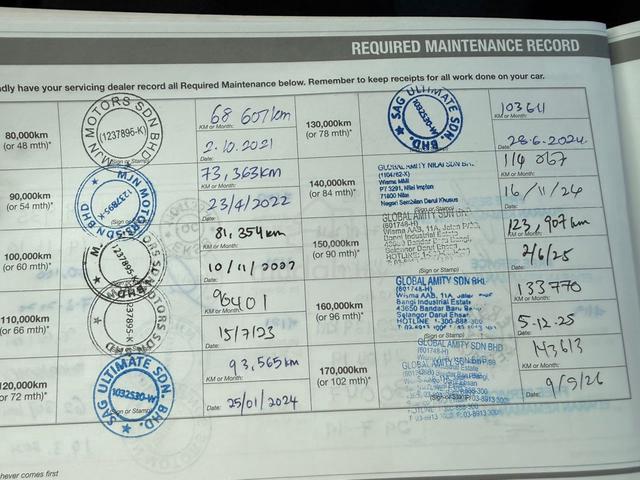 REQUIRED MAINTENANCE RECORD
ndly have your servicing dealer record all Required Maintenance below. Remember to keep receipts for all work done on your car.
80,000km
(or 48 mth)*
MJN MOTORS SDN BHD
(1237895-K)
(Sign or Stamp)
68 607km
KM or Month:
2.10.2021
Date:
90,000km
(or 54 mth)*
MJN MOTORS SDN BHD
1237895-K
(Sign or
73,363km
KM or Month:
23/4/2022
Date:
100,000km
(or 60 mth)*
1237895
81,354km
KM or Month:
10/11/2022
Date:
110,000km
(or 66 mth)*
1237895
MOTORS SDN
96401
KM or Month:
15/7/23
Date:
120,000km
72 mth)*
SAG ULTIMATE SDN. BHD.
1032530-W
or Stamp)
93,565km
KM or Month:
25/01/2024
Date:
130,000km
(or 78 mth)*
SAG ULTIMATE SDN. BHD.
1032530-W
103611
KM or Month:
28.6.2024
Date:
140,000km
(or 84 mth)*
GLOBAL AMITY NILAI SDN BHD
(1104762-X)
Wisma MMI
PT 3291, Nilai Impian
71800 Nilai
Negeri Sembilan Darul Khusus
(Sign or Stamp)
114 067
KM or Month:
16/11/24
Date:
150,000km
(or 90 mth)*
GLOBAL AMITY SDN BHD
(601748-H)
Wisma AAB, 11A, Jalan
Bangi Industrial Estate
43650 Bandar Baru Bangi,
Selangor Darul Ehsan
(Sign or Stamp)
123,907km
KM or Month:
2/6/25
Date:
160,000km
(or 96 mth)*
GLOBAL AMITY SDN BHD
(601748-H)
Wisma AAB, 11A, Jalan
Bangi Industrial Estate
43650 Bandar Baru B
Selangor Darul Ehsan
HOTLINE 1-300-888-300
133770
KM or Month:
5.12.25
Date:
170,000km
(or 102 mth)*
GLOBAL AMITY SDN BHD
(601748-H)
(Sign or Stamp)
143613
KM or Month:
9/9/26
Date:
hever comes first